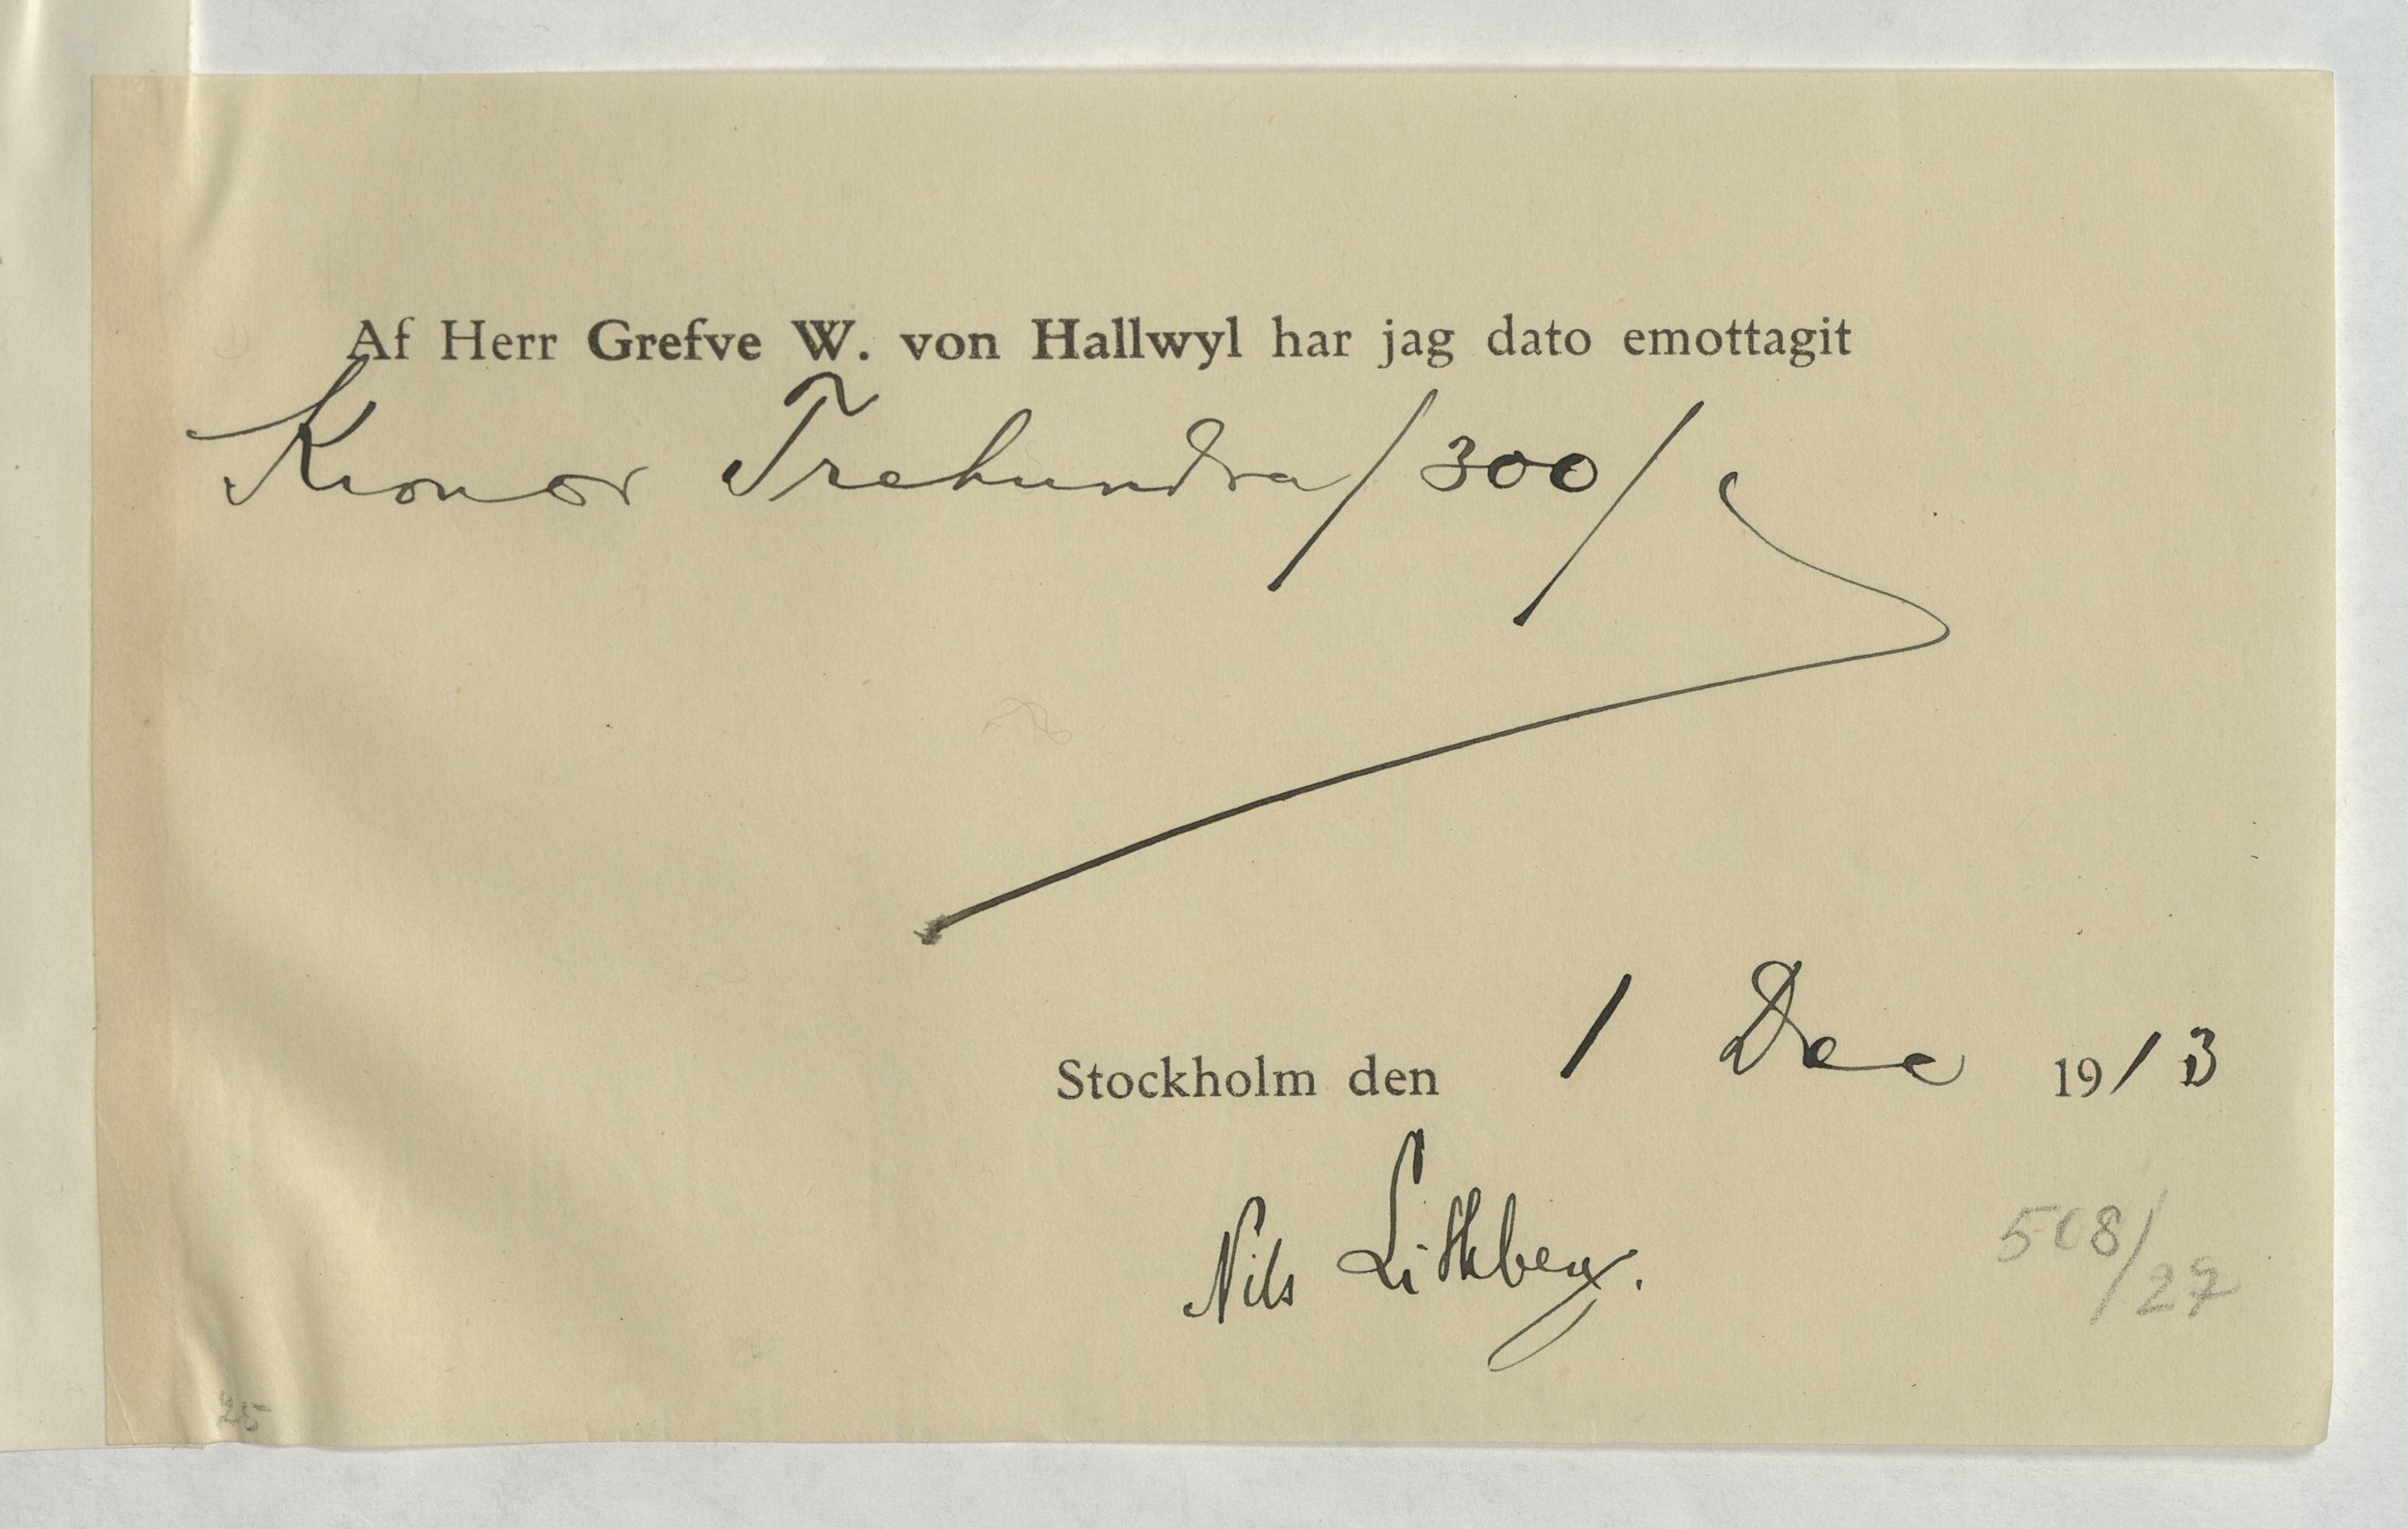 Af Herr Grefve W. von Hallwyl har jag dato emottagit
Kronor Trehundra /300/
Stockholm den 1 Dec 1913
Nils Lithberg.
508/27
25